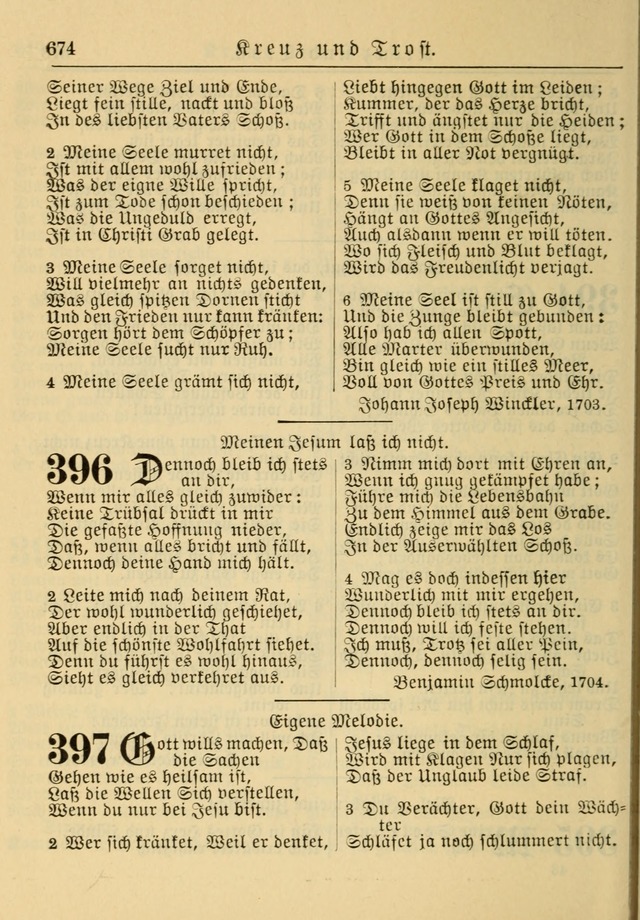 674 Kreuz und Trost.
Seiner Wege Ziel und Ende,
Liegt fein stille, nackt und bloß
In des liebsten Vaters Schoß.
2 Meine Seele murret nicht,
Ist mit allem wohl zufrieden;
Was der eigne Wille spricht,
Ist zum Tode schon beschieden;
Was die Ungeduld erregt,
Ist in Christi Grab gelegt.
3 Meine Seele sorget nicht,
Will vielmehr an nichts gedenken,
Was gleich spitzen Dornen sticht
Und den Frieden nur kann kränken:
Sorgen hört dem Schöpfer zu;
Meine Seele sucht nur Ruh.
4 Meine Seele grämt sich nicht,
Liebt hingegen Gott im Leiden;
Kummer, der das Herze bricht,
Trifft und ängstet nur die Heiden;
Wer Gott in dem Schoße liegt,
Bleibt in aller Not vergnügt.
5 Meine Seele klaget nicht,
Denn sie weiß von keinen Nöten,
Hängt an Gottes Angesicht,
Auch alsdann wenn er will töten.
Wo sich Fleisch und Blut beklagt,
Wird das Freudenlicht verjagt.
6 Meine Seel ist still zu Gott,
Und die Zunge bleibt gebunden:
Also hab ich allen Spott,
Alle Marter überwunden,
Bin gleich wie ein stilles Meer,
Voll von Gottes Preis und Ehr.
Johann Joseph Winckler, 1703.
Meinen Jesum laß ich nicht.
396 Dennoch bleib ich stets
an dir,
Wenn mir alles gleich zuwider:
Keine Trübsal drückt in mir
Die gefaßte Hoffnung nieder,
Daß, wenn alles bricht und fällt,
Dennoch deine Hand mich hält.
2 Leite mich nach deinem Rat,
Der wohl wunderlich geschiehet,
Aber endlich in der That
Auf die schönste Wohlfahrt siehet.
Denn du führst es wohl hinaus,
Sieht es gleich verkehret aus.
3 Nimm mich dort mit Ehren an,
Wenn ich gnug gekämpfet habe;
Führe mich die Lebensbahn
Zu dem Himmel aus dem Grabe.
Endlich zeige mir das Los
In der Auserwählten Schoß.
4 Mag es doch indessen hier
Wunderlich mit mir ergehen,
Dennoch bleib ich stets an dir.
Dennoch will ich feste stehen.
Ich muß, Trotz sei aller Pein,
Dennoch, dennoch selig sein.
Benjamin Schmolcke, 1704.
Eigene Melodie.
397 Gott wills machen, Daß
die Sachen
Gehen wie es heilsam ist,
Laß die Wellen Sich verstellen,
Wenn du nur bei Jesu bist.
2 Wer sich kränket, Weil er denket,
Jesus liege in dem Schlaf,
Wird mit Klagen Nur sich plagen,
Daß der Unglaub leide Straf.
3 Du Verächter, Gott dein Wäch-
ter
Schläfet ja noch schlummert nicht.